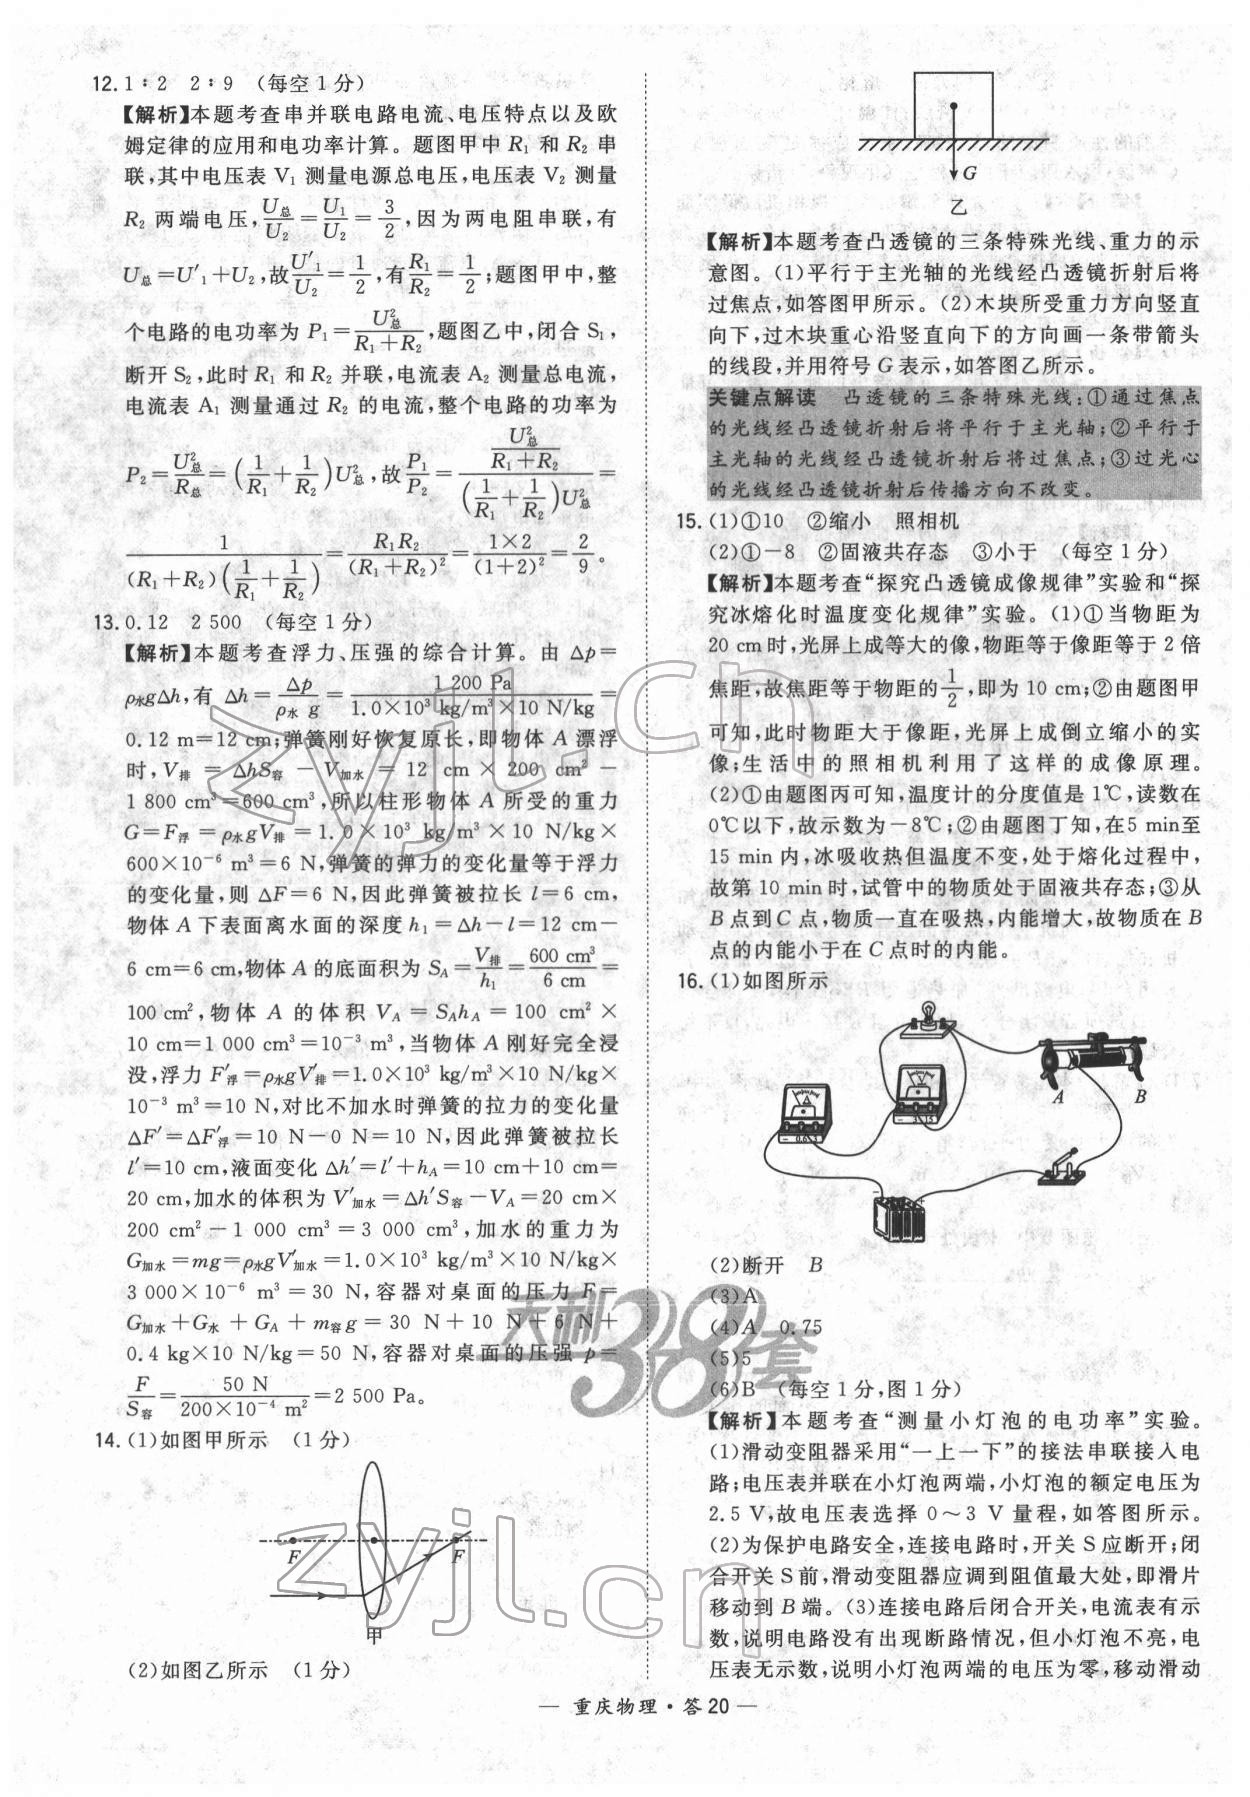 12. 1∶2　2∶9　(每空1分)
【解析】本题考查串并联电路电流、电压特点以及欧
姆定律的应用和电功率计算。题图甲中 R₁ 和 R₂ 串
联,其中电压表 V₁ 测量电源总电压,电压表 V₂ 测量
R₂ 两端电压,U总/U₂=U₁/U₂=3/2,因为两电阻串联,有
U总=U′₁+U₂,故U′₁/U₂=1/2,有R₁/R₂=1/2;题图甲中,整
个电路的电功率为 P₁=U²总/(R₁+R₂),题图乙中,闭合 S₁,
断开S₂,此时 R₁ 和 R₂ 并联,电流表 A₂ 测量总电流,
电流表 A₁ 测量通过 R₂ 的电流,整个电路的功率为
P₂=U²总/R总=(1/R₁+1/R₂)U²总,故P₁/P₂=(U²总/(R₁+R₂))/((1/R₁+1/R₂)U²总)=
1/((R₁+R₂)(1/R₁+1/R₂))=R₁R₂/(R₁+R₂)²=1×2/(1+2)²=2/9。
13. 0.12　2 500　(每空1分)
【解析】本题考查浮力、压强的综合计算。由 Δp=
ρ水gΔh,有 Δh=Δp/(ρ水 g)=1 200 Pa/(1.0×10³ kg/m³×10 N/kg)=
0.12 m=12 cm;弹簧刚好恢复原长,即物体 A 漂浮
时,V排 = ΔhS容 － V加水 = 12 cm × 200 cm²－
1 800 cm³=600 cm³,所以柱形物体 A 所受的重力
G=F浮 =ρ水gV排 =1.0×10³ kg/m³×10 N/kg×
600×10⁻⁶ m³=6 N,弹簧的弹力的变化量等于浮力
的变化量,则 ΔF=6 N,因此弹簧被拉长 l=6 cm,
物体 A 下表面离水面的深度 h₁=Δh－l=12 cm－
6 cm=6 cm,物体 A 的底面积为 S_A=V排/h₁=600 cm³/6 cm=
100 cm²,物体 A 的体积 V_A = S_Ah_A = 100 cm² ×
10 cm=1 000 cm³=10⁻³ m³,当物体 A 刚好完全浸
没,浮力 F′浮=ρ水gV′排=1.0×10³ kg/m³×10 N/kg×
10⁻³ m³=10 N,对比不加水时弹簧的拉力的变化量
ΔF′=ΔF′浮=10 N－0 N=10 N,因此弹簧被拉长
l′=10 cm,液面变化 Δh′=l′+h_A=10 cm+10 cm=
20 cm,加水的体积为 V′加水=Δh′S容－V_A=20 cm×
200 cm²－1 000 cm³=3 000 cm³,加水的重力为
G加水=mg=ρ水gV′加水=1.0×10³ kg/m³×10 N/kg×
3 000×10⁻⁶ m³=30 N,容器对桌面的压力 F=
G加水+G水 +G_A+m容g=30 N+10 N+6 N+
0.4 kg×10 N/kg=50 N,容器对桌面的压强 p=
F/S容=50 N/(200×10⁻⁴ m²)=2 500 Pa。
14. (1)如图甲所示　(1分)
F
F
甲
(2)如图乙所示　(1分)
G
乙
【解析】本题考查凸透镜的三条特殊光线、重力的示
意图。(1)平行于主光轴的光线经凸透镜折射后将
过焦点,如答图甲所示。(2)木块所受重力方向竖直
向下,过木块重心沿竖直向下的方向画一条带箭头
的线段,并用符号 G 表示,如答图乙所示。
关键点解读　凸透镜的三条特殊光线:①通过焦点
的光线经凸透镜折射后将平行于主光轴;②平行于
主光轴的光线经凸透镜折射后将过焦点;③过光心
的光线经凸透镜折射后传播方向不改变。
15. (1)①10　②缩小　照相机
(2)①－8　②固液共存态　③小于　(每空1分)
【解析】本题考查“探究凸透镜成像规律”实验和“探
究冰熔化时温度变化规律”实验。(1)①当物距为
20 cm时,光屏上成等大的像,物距等于像距等于 2 倍
焦距,故焦距等于物距的1/2,即为 10 cm;②由题图甲
可知,此时物距大于像距,光屏上成倒立缩小的实
像;生活中的照相机利用了这样的成像原理。
(2)①由题图丙可知,温度计的分度值是 1℃,读数在
0℃以下,故示数为－8℃;②由题图丁知,在5 min至
15 min 内,冰吸收热但温度不变,处于熔化过程中,
故第 10 min时,试管中的物质处于固液共存态;③从
B点到C点,物质一直在吸热,内能增大,故物质在 B
点的内能小于在 C 点时的内能。
16. (1)如图所示
A
B
(2)断开　B
(3)A
(4)A　0.75
(5)5
(6)B　(每空1分,图1分)
【解析】本题考查“测量小灯泡的电功率”实验。
(1)滑动变阻器采用“一上一下”的接法串联接入电
路;电压表并联在小灯泡两端,小灯泡的额定电压为
2.5 V,故电压表选择 0～3 V 量程,如答图所示。
(2)为保护电路安全,连接电路时,开关 S 应断开;闭
合开关 S 前,滑动变阻器应调到阻值最大处,即滑片
移动到 B 端。(3)连接电路后闭合开关,电流表有示
数,说明电路没有出现断路情况,但小灯泡不亮,电
压表无示数,说明小灯泡两端的电压为零,移动滑动
— 重庆物理·答20 —
zyjl.cn
天利38套
zyjl.cn